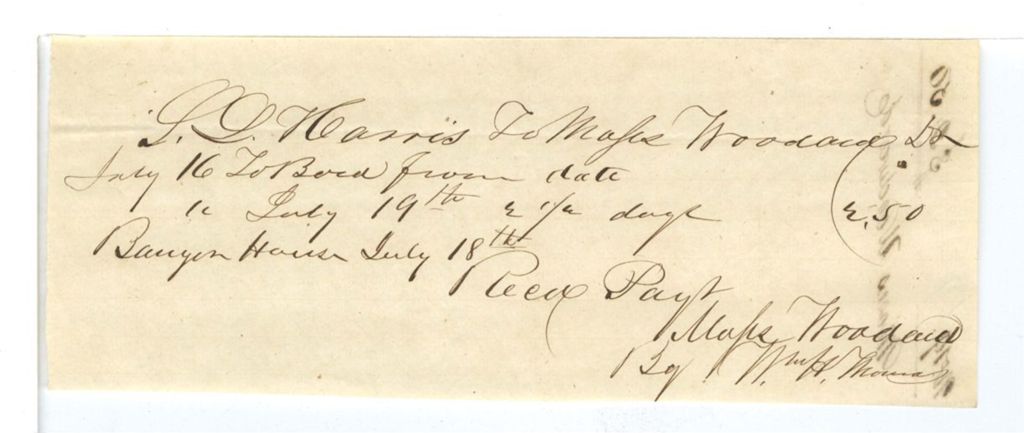 S. D. Harris To Moses Woodard Dr
July 16 To Bord from date
to July 19th 2 1/2 days 2,50
House July 18th
Recd Payt
Moses Woodard
By Wm H. Thomas